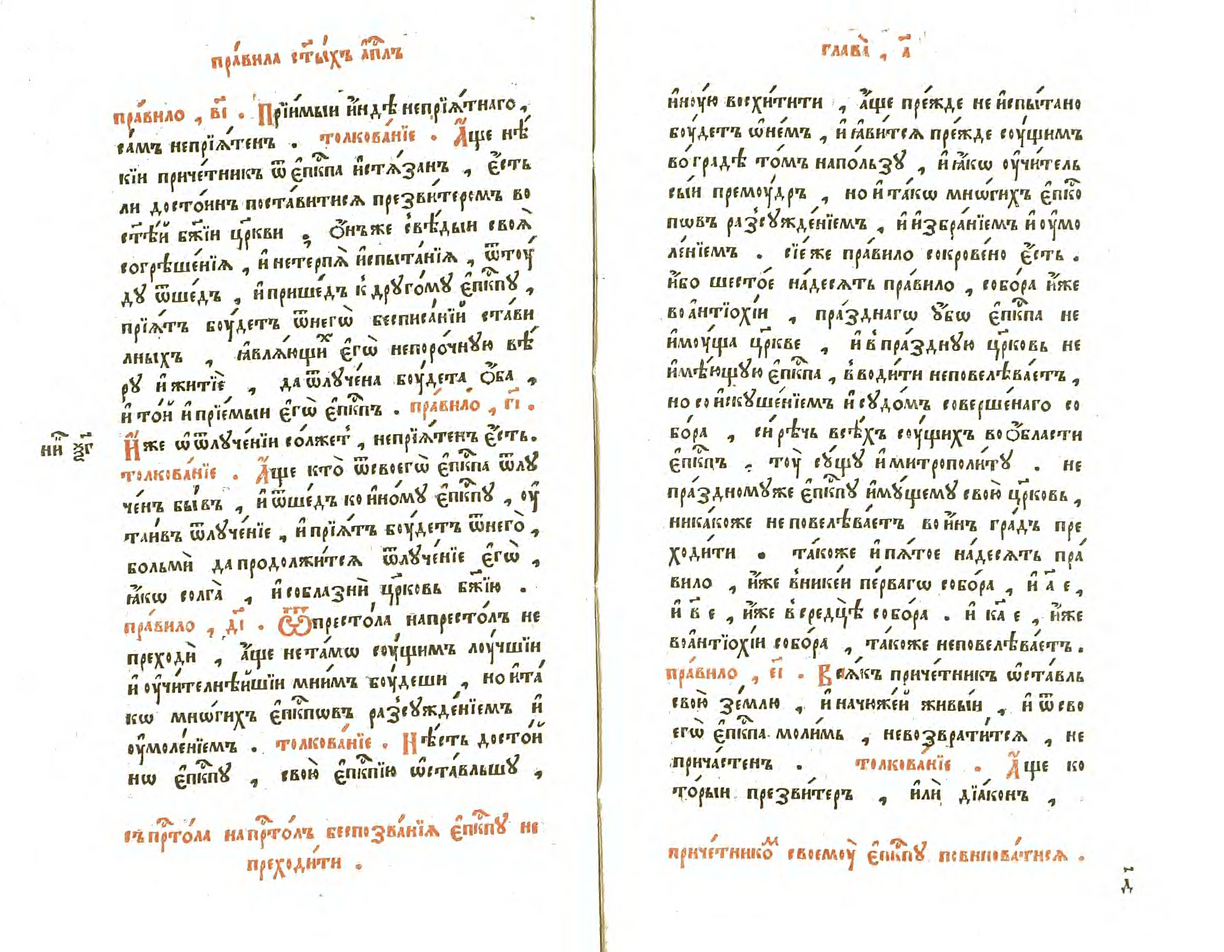 пра́вила ст҃ы́хъ а҆пⷭ҇лъ
пра́вило , в҃і . Прїи́мыи и҆ндѣ̀ непрїѧ́тнаго ,
са́мъ непрїѧ́тенъ . толкова́нїе . А҆́ще нѣ́
кїи приче́тникъ ѿ є҆пⷭ҇кпа и҆стѧ́занъ , є҆́сть
ли досто́инъ поста́витисѧ презви́теромъ во
ст҃ѣ́й бж҃їи цр҃кви . Ѻ҆́нъже свѣ́дыи своѧ̀
согрѣше́нїѧ , и҆ нетерпѧ̀ и҆спыта́нїѧ , ѿтоу́
дꙋ ѿше́дъ , и҆ прише́дъ к дрꙋго́мꙋ є҆пⷭ҇кпꙋ ,
прїѧ́тъ бꙋ́детъ ѿнегѡ̀ бесписа́нїй ста́ви
лныхъ , ꙗ҆влѧ́ющиⷯ є҆гѡ̀ непоро́чнꙋю вѣ́
рꙋ и҆ житїѐ , да ѿлꙋче́на боу́дета ѻ҆́ба ,
и҆ то́й и҆ прїе́мыи є҆гѡ̀ є҆пⷭ҇кпъ . пра́вило , г҃і .
И҆́же ѡ҆ ѿлꙋче́нїи со́лжетъ , непрїѧ́тенъ є҆́сть .
толкова́нїе . А҆́ще кто̀ ѿсвоегѡ̀ є҆пⷭ҇кпа ѿлꙋ
че́нъ бы́въ , и҆ ѿше́дъ ко и҆но́мꙋ є҆пⷭ҇кпꙋ , оу҆
таи́въ ѿлꙋче́нїе , и҆ прїѧ́тъ боу́детъ ѿнегѡ̀ ,
больмѝ да продолжи́тсѧ ѿлꙋче́нїе є҆гѡ̀ ,
ꙗ҆́кѡ солга̀ , и҆ соблазнѝ цр҃ковь бж҃їю .
пра́вило , д҃і . Ѿпресто́ла напресто́лъ не
преходѝ , а҆́ще не та́мѡ соу́щимъ лоу́чшїи
и҆ оу҆чи́телнѣйшїи мни́мъ боу́деши , но и҆ та́
кѡ мнѡ́гихъ є҆пⷭ҇кпѡвъ разсꙋжде́нїемъ и҆
оу҆моле́нїемъ . толкова́нїе . Нѣ́сть досто́й
нѡ є҆пⷭ҇кпꙋ , свою̀ є҆пⷭ҇кпїю ѡ҆ста́вльшꙋ ,
съ прⷭ҇то́ла на прⷭ҇то́лъ беспозва́нїѧ є҆пⷭ҇кпꙋ не
преходи́ти .
глава̀ , а҃
и҆ноу́ю восхи́тити , а҆́ще пре́жде не и҆спы́тано
боу́детъ ѡ҆не́мъ , и҆ ꙗ҆ви́тсѧ пре́жде соу́щимъ
во гра́дѣ то́мъ напо́льзꙋ , и҆ ꙗ҆́кѡ оу҆чи́тель
сы́и премоу́дръ , но и҆ та́кѡ мнѡ́гихъ є҆пⷭ҇ко
пѡвъ разсꙋжде́нїемъ , и҆ и҆збра́нїемъ и҆ оу҆мо
ле́нїемъ . сїе́ же пра́вило сокрове́но є҆́сть .
и҆́бо шесто́е на́десѧть пра́вило , собо́ра и҆́же
во а҆нтїохі́и , пра́здна́гѡ ᲂу҆́бѡ є҆пⷭ҇кпа не
и҆мо́ꙋща цр҃кве , и҆ в пра́зднꙋю цр҃ковь не
и҆мѣ́ющꙋю є҆пⷭ҇кпа , вводи́ти неповелѣва́етъ ,
но со и҆скꙋше́нїемъ и҆ сꙋдо́мъ соверше́наго со
бо́ра , си́рѣчь всѣ́хъ соу́щихъ во ѻ҆́бласти
є҆пⷭ҇кпъ . тоу̀ сꙋ́щꙋ и҆ митрополи́тꙋ . не
пра́здномꙋже є҆пⷭ҇кпꙋ и҆мꙋ́щемꙋ свою̀ цр҃ковь ,
ника́коже не повелѣва́етъ во и҆́нъ гра́дъ пре
ходи́ти . та́коже и҆ пѧ́тое на́десѧть пра́
вило , и҆́же вни́кеи пе́рвагѡ собо́ра , и҆ а҃ е ,
и҆ в҃ е , и҆́же в сердцѣ́ собо́ра . и҆ ка҃ е , и҆́же
во а҆нтїохі́и собо́ра , та́коже неповелѣва́етъ .
пра́вило , є҃і . Всѧ́къ приче́тникъ ѡ҆ста́вль
свою̀ зе́млю , и҆ начюже́й живы́и , и҆ ѿ сво
егѡ̀ є҆пⷭ҇кпа моли́мь , невозврати́тсѧ , не
прича́стенъ . толкова́нїе . А҆́ще ко
то́рыи презви́теръ , и҆лѝ дїа́конъ ,
приче́тникоⷨ своемоу̀ є҆пⷭ҇кпꙋ повинова́тисѧ .
д҃